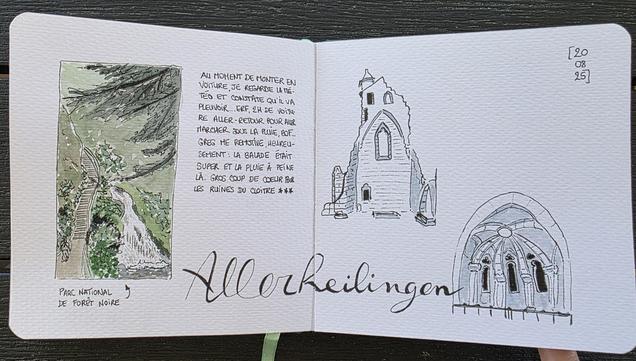 AU MOMENT DE MONTER EN
VOITURE, JE REGARDE LA MÉ-
TÉO ET CONSTATE QU'IL VA
PLEUVOIR... ERF, 2H DE VOITU
RE ALLER-RETOUR POUR ALLER
MARCHER SOUS LA PLUIE, BOF...
GREG ME REMOTIVE, HEUREU-
SEMENT : LA BALADE ÉTAIT
SUPER ET LA PLUIE À PEINE
LÀ. GROS COUP DE COEUR POUR
LES RUINES DU CLOÎTRE ***
PARC NATIONAL
DE FORÊT NOIRE
Allerheilingen
[20
08
25]